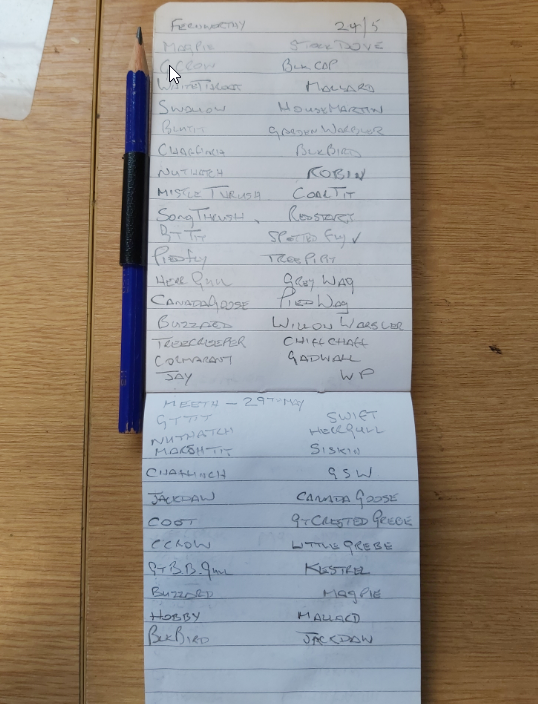 FERNWORTHY 24/5
MAGPIE STOCK DOVE
C. CROW BLK CAP
WHITETHROAT MALLARD
SWALLOW HOUSE MARTIN
BLUTIT GARDEN WARBLER
CHAFFINCH BLKBIRD
NUTHATCH ROBIN
MISTLE THRUSH. COALTIT
SONG THRUSH. REDSTART
GT TIT SPOTTED FLY ✓
PIEDFLY TREE PIPIT
HERR GULL GREY WAG
CANADA GOOSE PIED WAG
BUZZARD WILLOW WARBLER
TREECREEPER CHIFCHAFF
CORMORANT GADWALL
JAY WP
MEETH - 29TH MAY
GT TIT SWIFT
NUTHATCH HERR GULL
MARSH TIT SISKIN
CHAFFINCH GSW
JACKDAW CANADA GOOSE
COOT GT CRESTED GREBE
C CROW LITTLE GREBE
GT B.B. GULL KESTREL
BUZZARD MAGPIE
HOBBY MALLARD
BLKBIRD JACKDAW